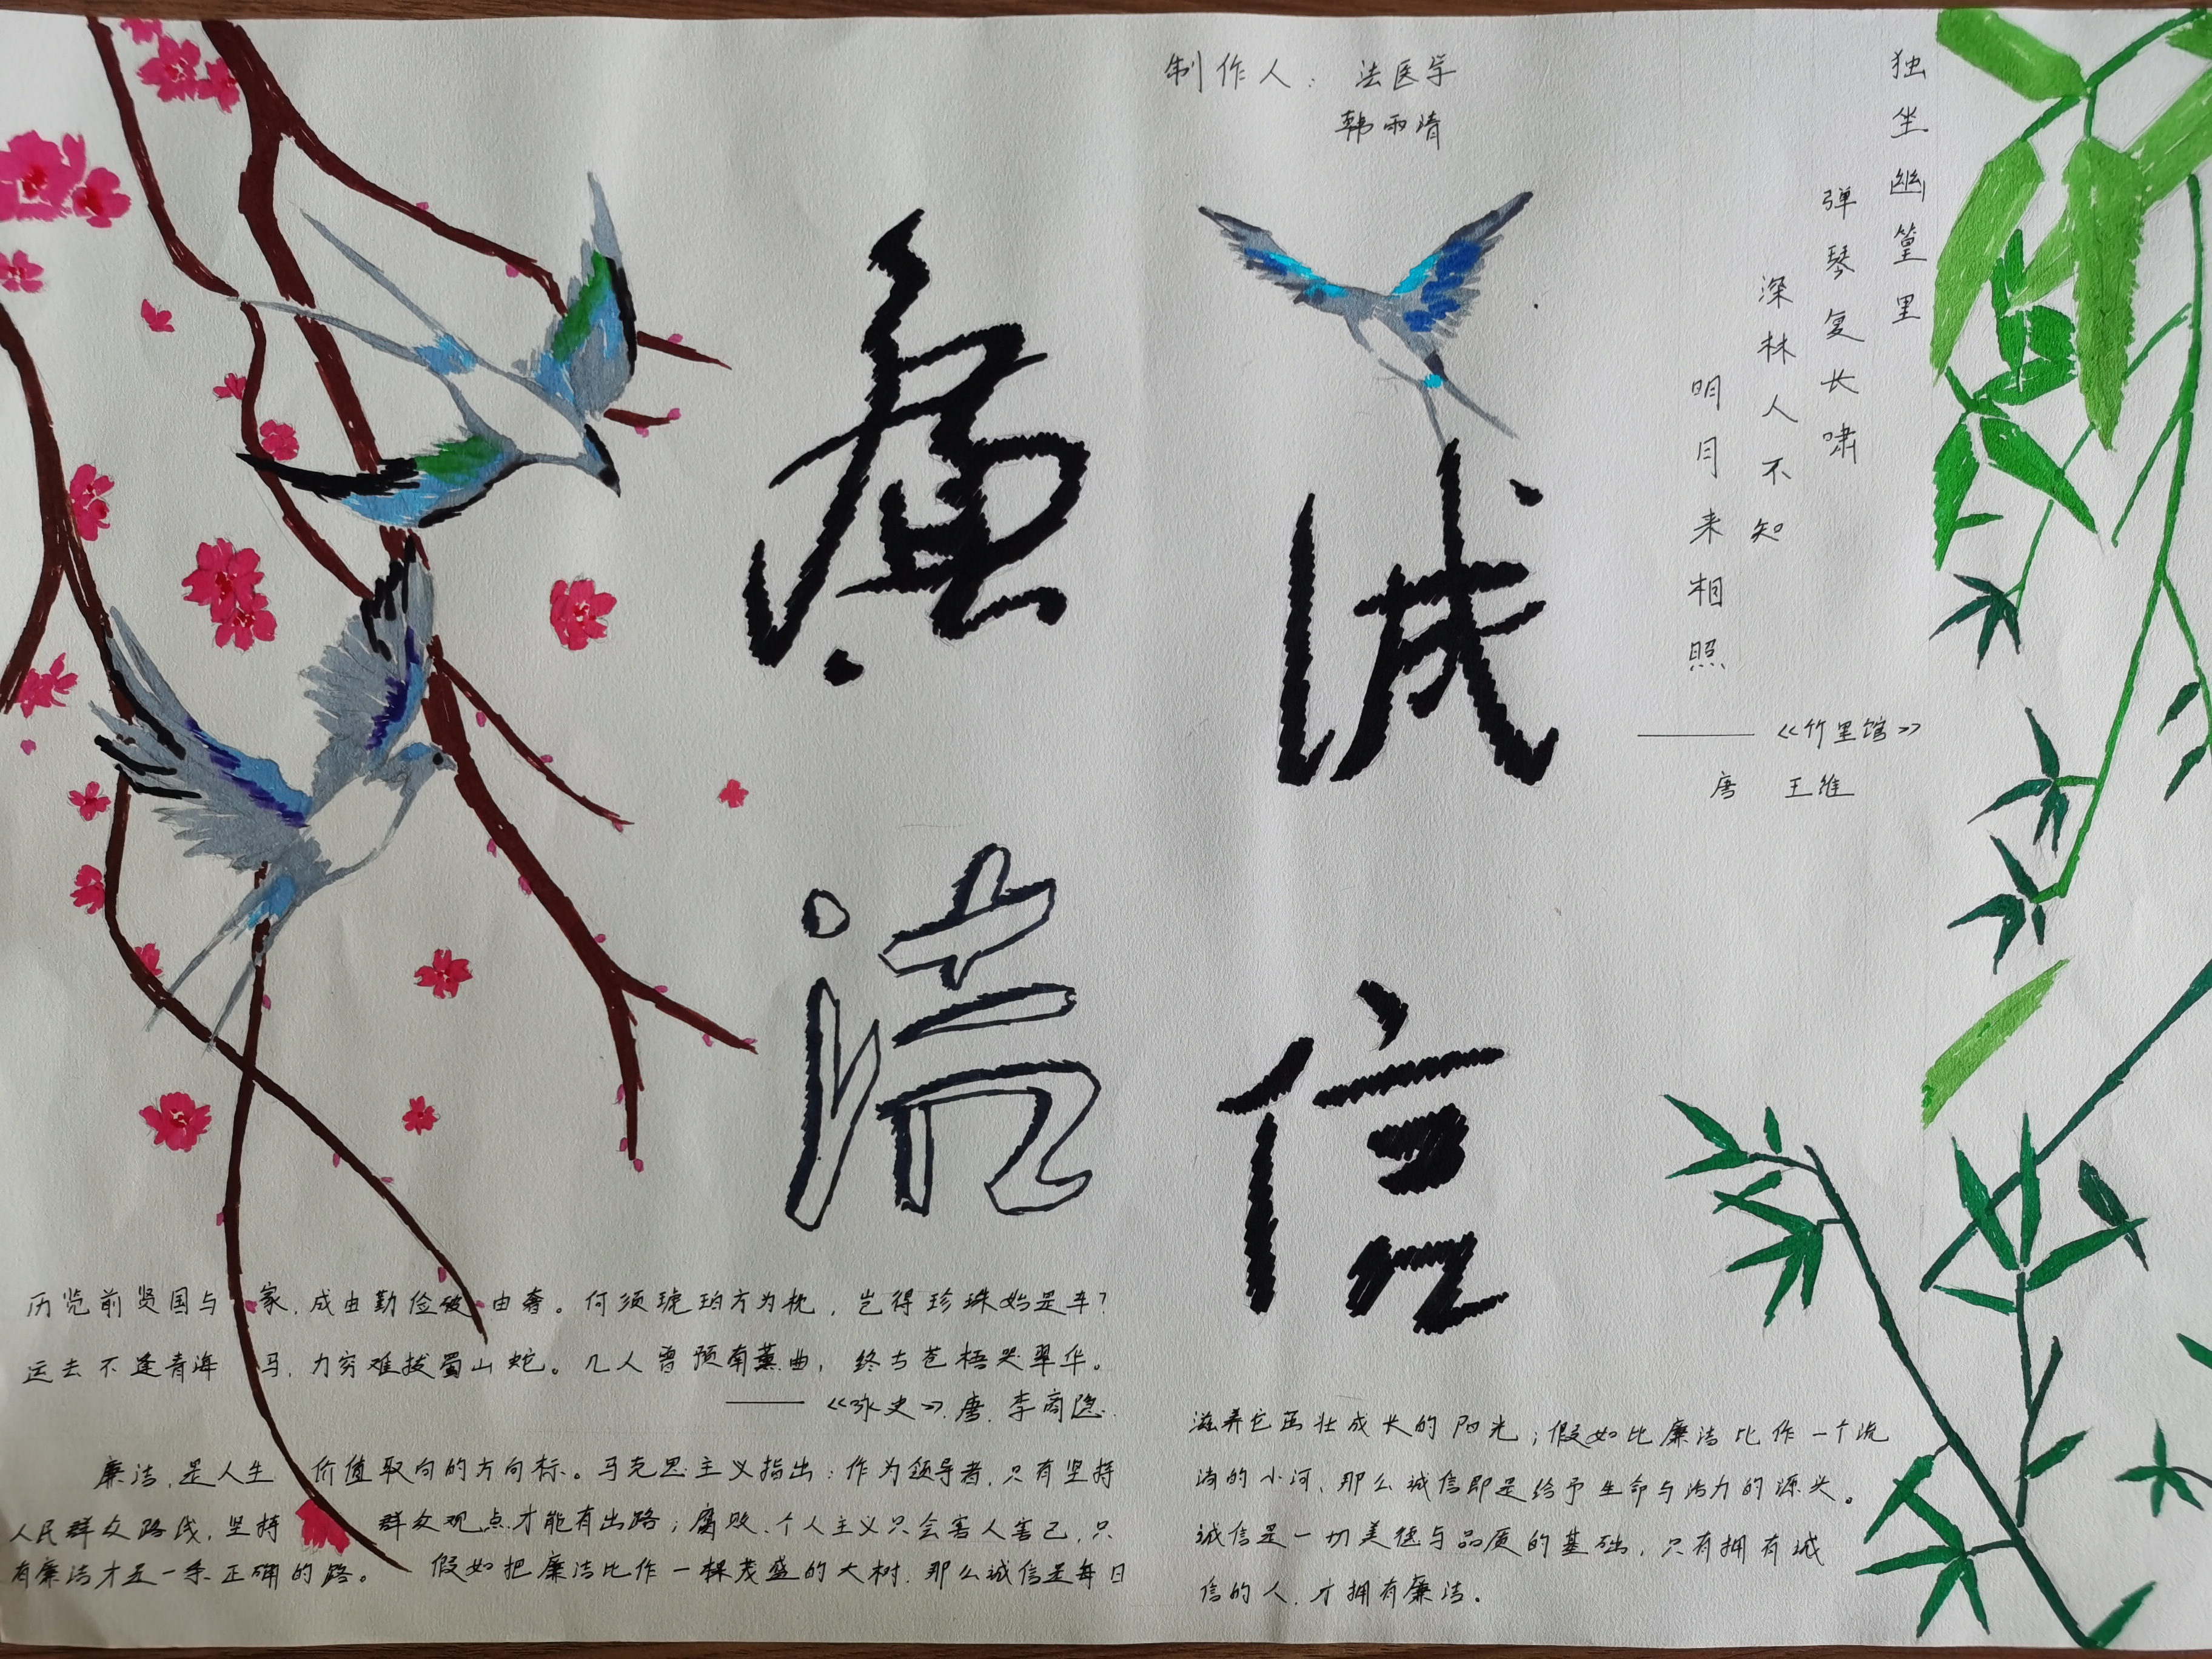 制作人：法医学
韩雨晴
廉
洁
诚
信
独坐幽篁里
弹琴复长啸
深林人不知
明月来相照
——《竹里馆》
唐 王维
历览前贤国与家，成由勤俭破由奢。何须琥珀方为枕，岂得珍珠始是车？
运去不逢青海马，力穷难拔蜀山蛇。几人曾预南薰曲，终古苍梧哭翠华。
——《咏史》唐.李商隐.
廉洁，是人生价值取向的方向标。马克思主义指出：作为领导者，只有坚持
人民群众路线，坚持群众观点才能有出路；腐败、个人主义只会害人害己，只
有廉洁才是一条正确的路。 假如把廉洁比作一棵茂盛的大树，那么诚信是每日
滋养它茁壮成长的阳光；假如比廉洁比作一个流
淌的小河，那么诚信即是给予生命与活力的源头。
诚信是一切美德与品质的基础，只有拥有诚
信的人，才拥有廉洁。